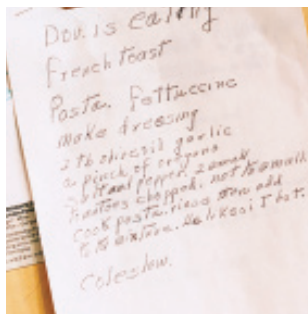 Dov. is eating
French toast
Pasta. Fettuccine
make dressing
2 tb olive oil garlic
a pinch of oregano
salt and pepper, 2 small
tomatoes chopped, not to small
cook pasta. rinse then add
to mixture. He likes it hot.
Coleslaw.